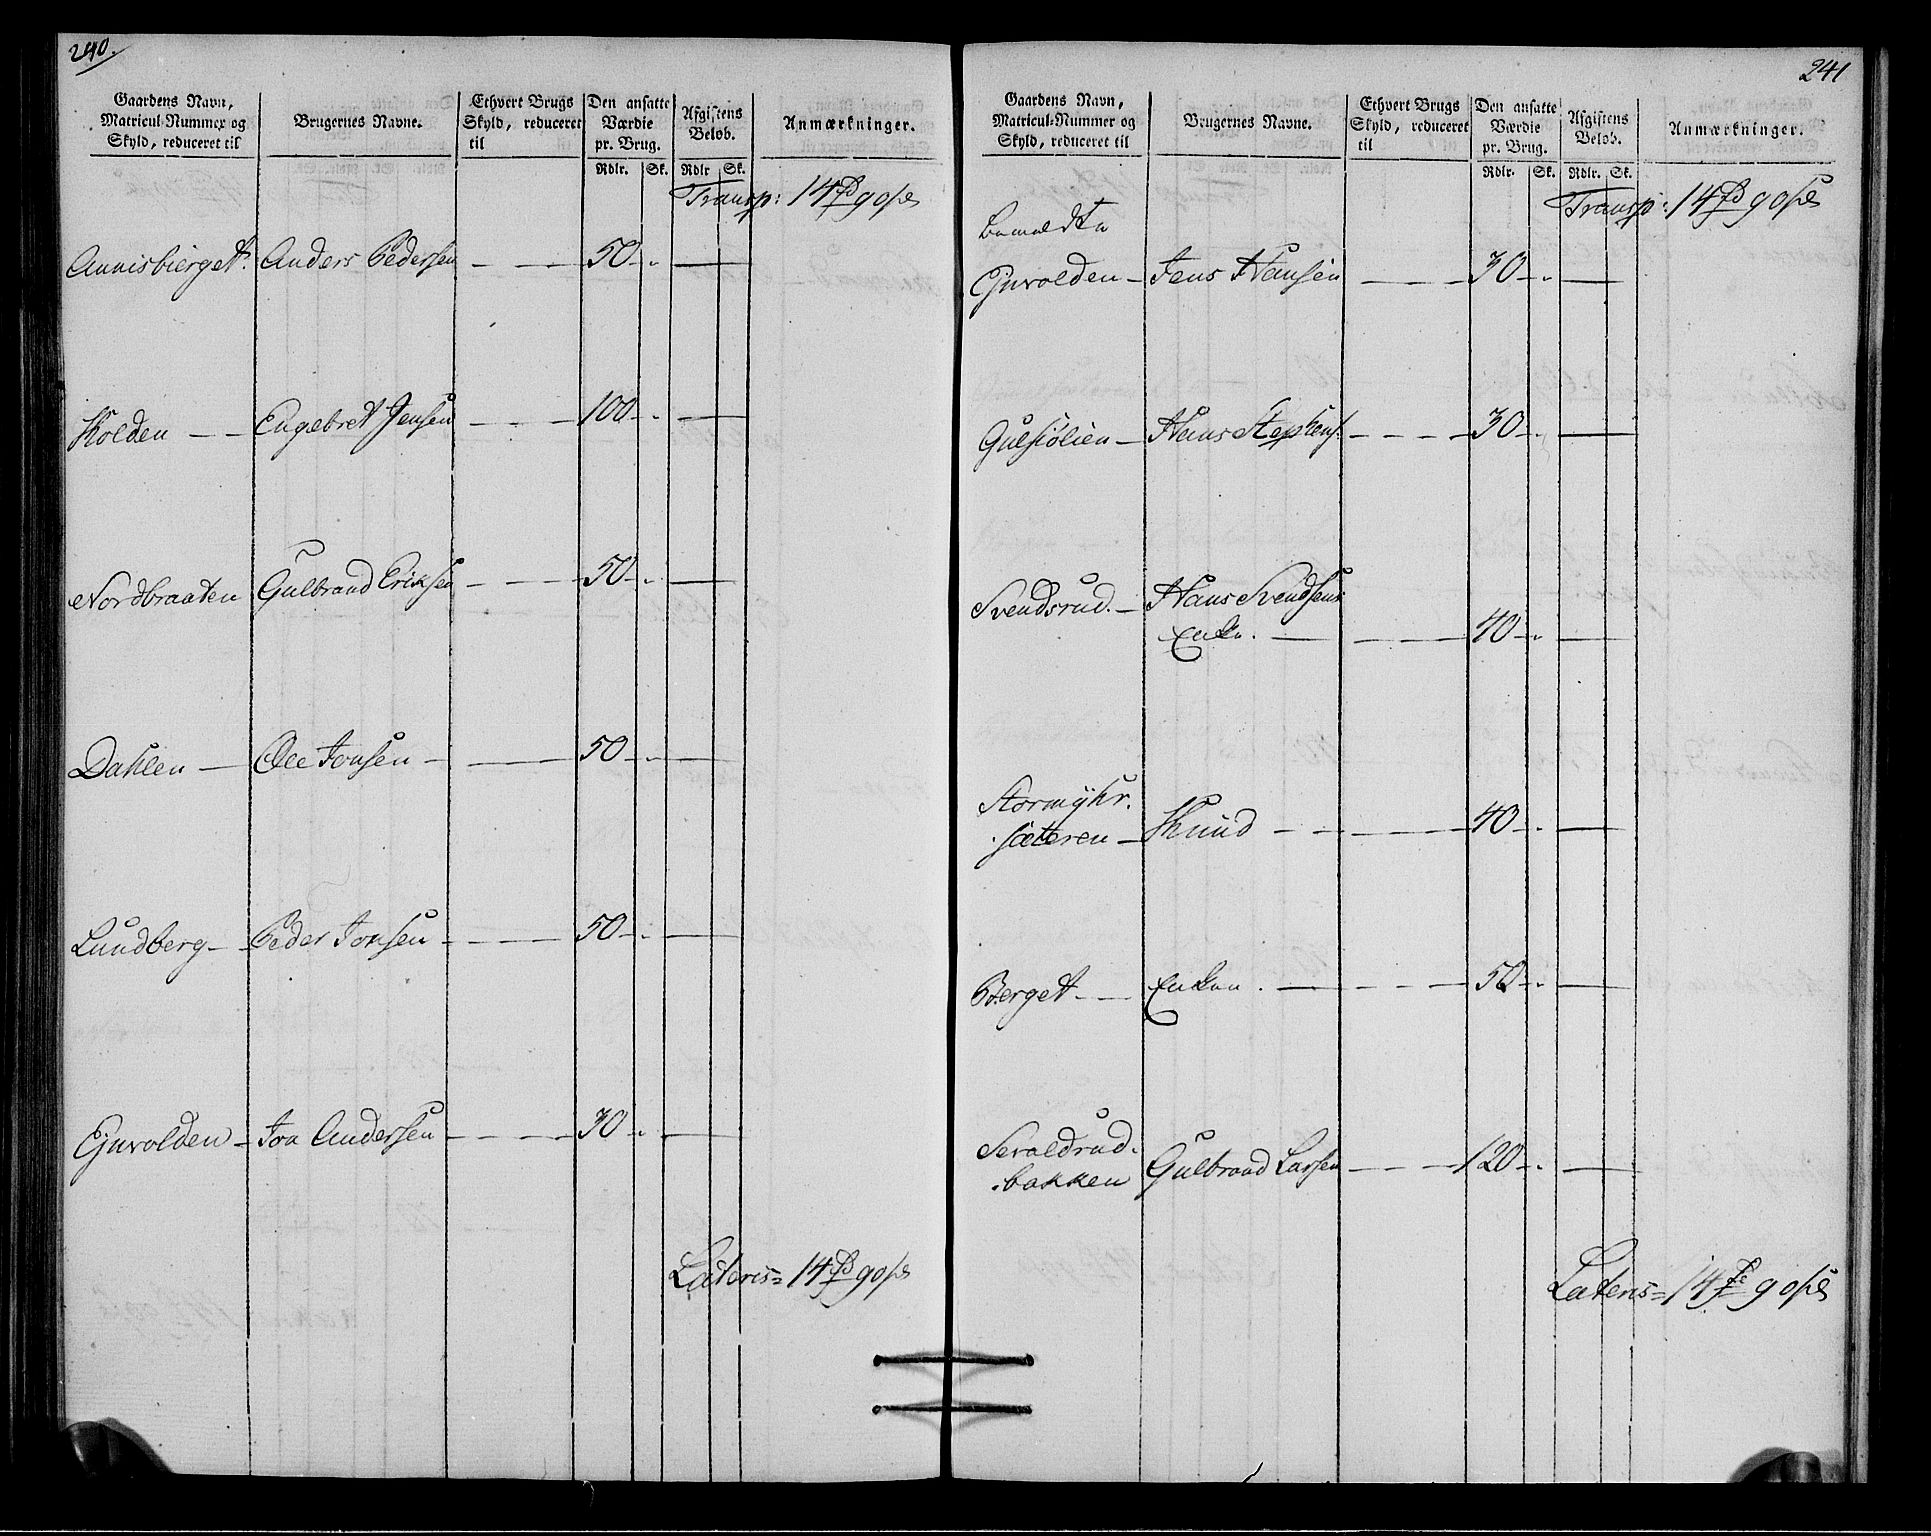 240.
Gaardens Navn, Matricul-Nummer og Skyld, reduceret til
Brugernes Navne.
Ethvert Brugs Skyld, reduceret til
Den ansatte Værdie pr. Brug.
Afgiftens Beløb.
Anmærkninger.
Rdlr. Sk. Rdlr Sk.
Transp: 14 90
Annisbierget. Anders Pedersen 50
Holden Engebret Jensen 100
Nordbraaten Gulbrand Eriksen 50
Dahlen Ole Jonsen 50
Lundberg Peder Jonsen 50
Ejnvolden Joa Andersen 30
Lateris = 14 90
241
Gaardens Navn, Matricul-Nummer og Skyld, reduceret til
Brugernes Navne.
Ethvert Brugs Skyld, reduceret til
Den ansatte Værdie pr. Brug.
Afgiftens Beløb.
Anmærkninger.
Rdlr. Sk. Rdlr. Sk.
Transp: 14 90
Bemeldte
Ejnvolden Jens Hansen 30
Gulsiølien Hans Stephens. 30
Svendsrud. Hans Svendsens
Enke. 40
Stormyhr.
sæteren Knud 40
Berget Enken. 50
Sevaldrud.
bakken Gulbrand Larsen 120
Lateris = 14 90